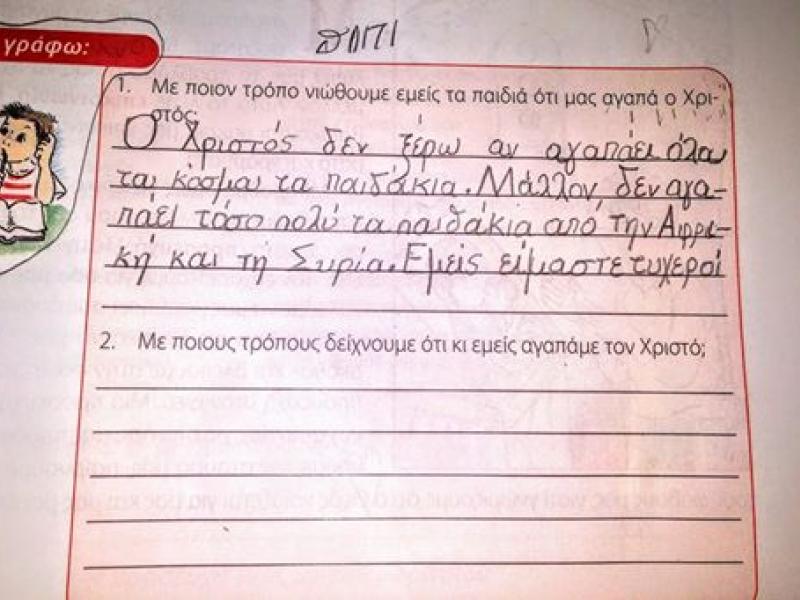 γράφω:
ΣΠΙΤΙ
1. Με ποιον τρόπο νιώθουμε εμείς τα παιδιά ότι μας αγαπά ο Χρι-
στός;
Ο Χριστός δεν ξέρω αν αγαπάει όλου
του κόσμου τα παιδάκια. Μάλλον, δεν αγα-
πάει τόσο πολύ τα παιδάκια από την Αφρι-
κη και τη Συρία. Εμείς είμαστε τυχεροί
2. Με ποιους τρόπους δείχνουμε ότι κι εμείς αγαπάμε τον Χριστό;